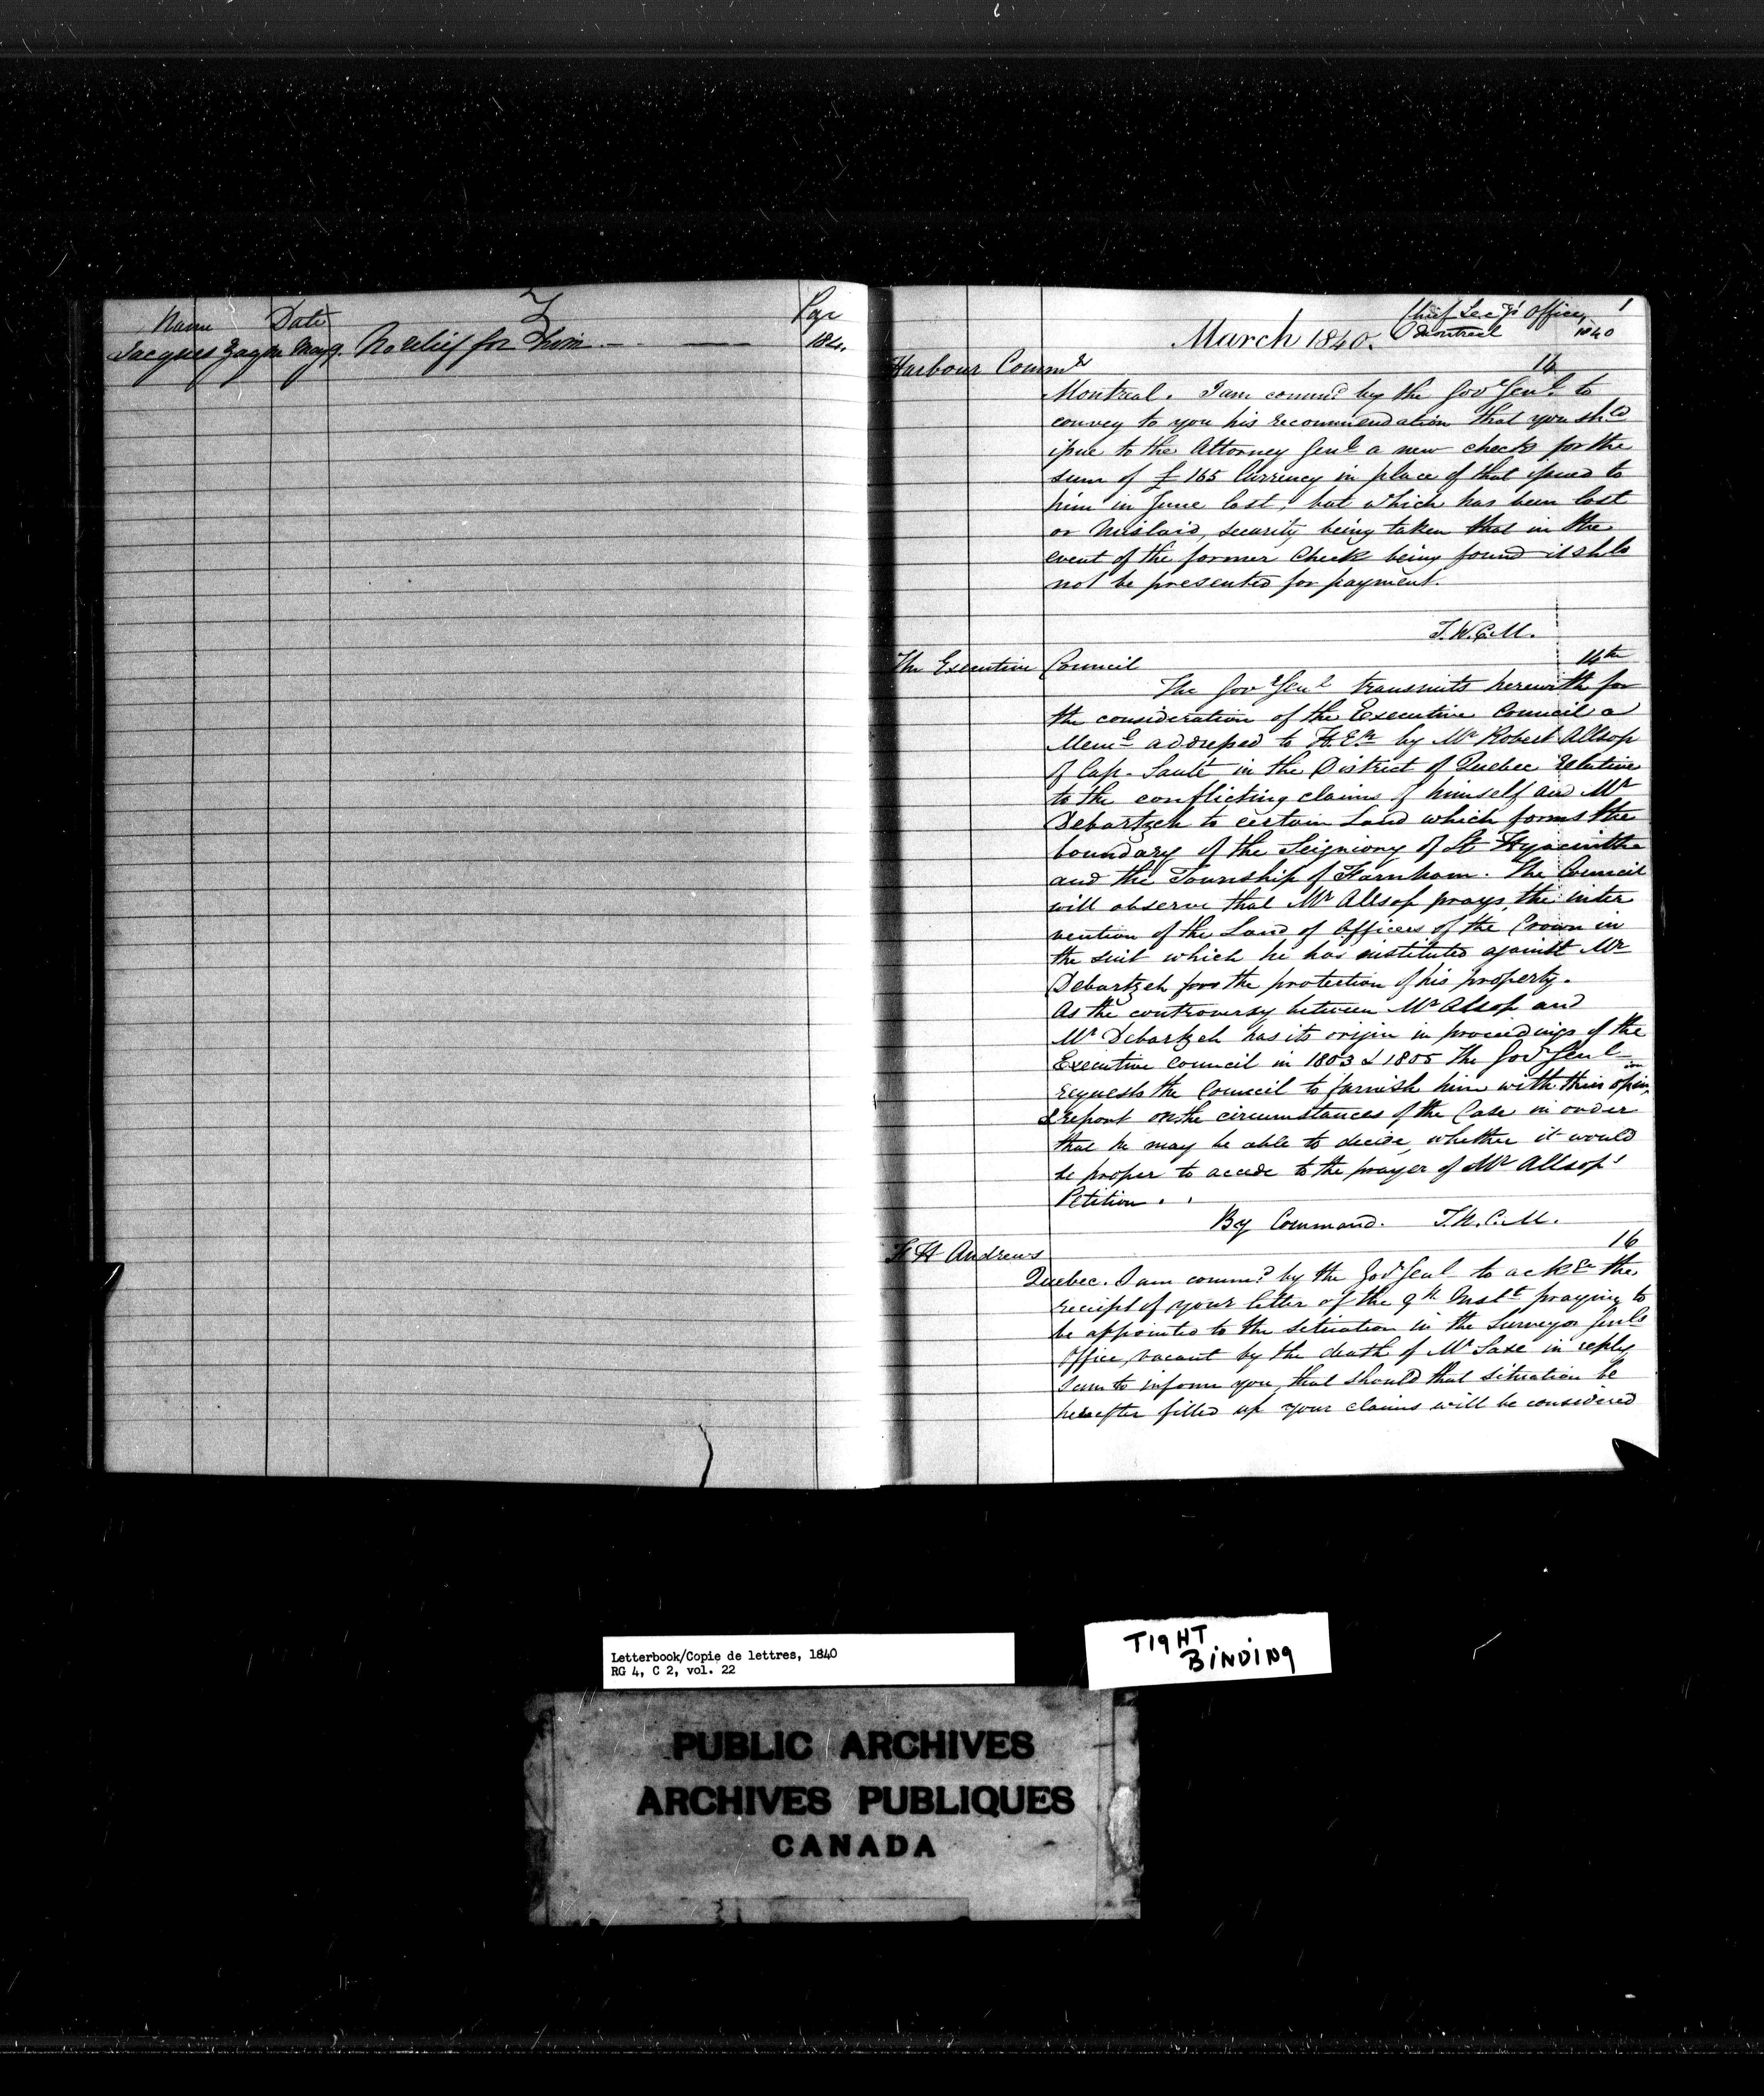 Z
Name Date Pge
Jacques May 9. No relief for him 184.
1
Chief Secy's Office
March 1840. Montreal 1840
Harbour Commrs 14
Montreal. I am commd by the Govr Genl to
convey to you his recommendation that you shld
issue to the Attorney Genl a new check for the
sum of £165 Currency in place of that issued to
him in June last, but which has been lost
or Mislaid, security being taken that in the
event of the former Check being found it shld
not be presented for payment.
T.W.C.M.
The Executive Council 14th
The Govr Genl transmits herewith for
the consideration of the Executive Council a
Meml addressed to H.Ex. by Mr Robert Allsop
of Cap-Santé in the District of Quebec relative
to the conflicting claims of himself and Mr
Debartzch to certain Land which forms the
boundary of the Seigniory of St Hyacinthe
and the Township of Farnham. The Council
will observe that Mr Allsop prays the inter
vention of the Land of Officers of the Crown in
the suit which he has instituted against Mr
Debartzch for the protection of his property.
As the controversy between Mr Alsop and
Mr Debartzch has its origin in proceedings of the
Executive Council in 1803 & 1805 the Govr Genl
requests the Council to furnish him with their opinion
& report on the circumstances of the Case in order
that he may be able to decide, whether it would
be proper to accede to the prayer of Mr Allsop's
Petition.
By Command. T.W.C.M.
16
H Andrews
Quebec. I am commd by the Govr Genl to ackge the
receipt of your letter of the 9th Instt praying to
be appointed to the situation in the Surveyor Genls
Office, vacant by the death of Mr Saxe in reply
I am to inform you, that should that situation be
hereafter filled up your claims will be considered
Letterbook/Copie de lettres, 1840
RG 4, C 2, vol. 22
TIGHT
BINDING
PUBLIC ARCHIVES
ARCHIVES PUBLIQUES
CANADA